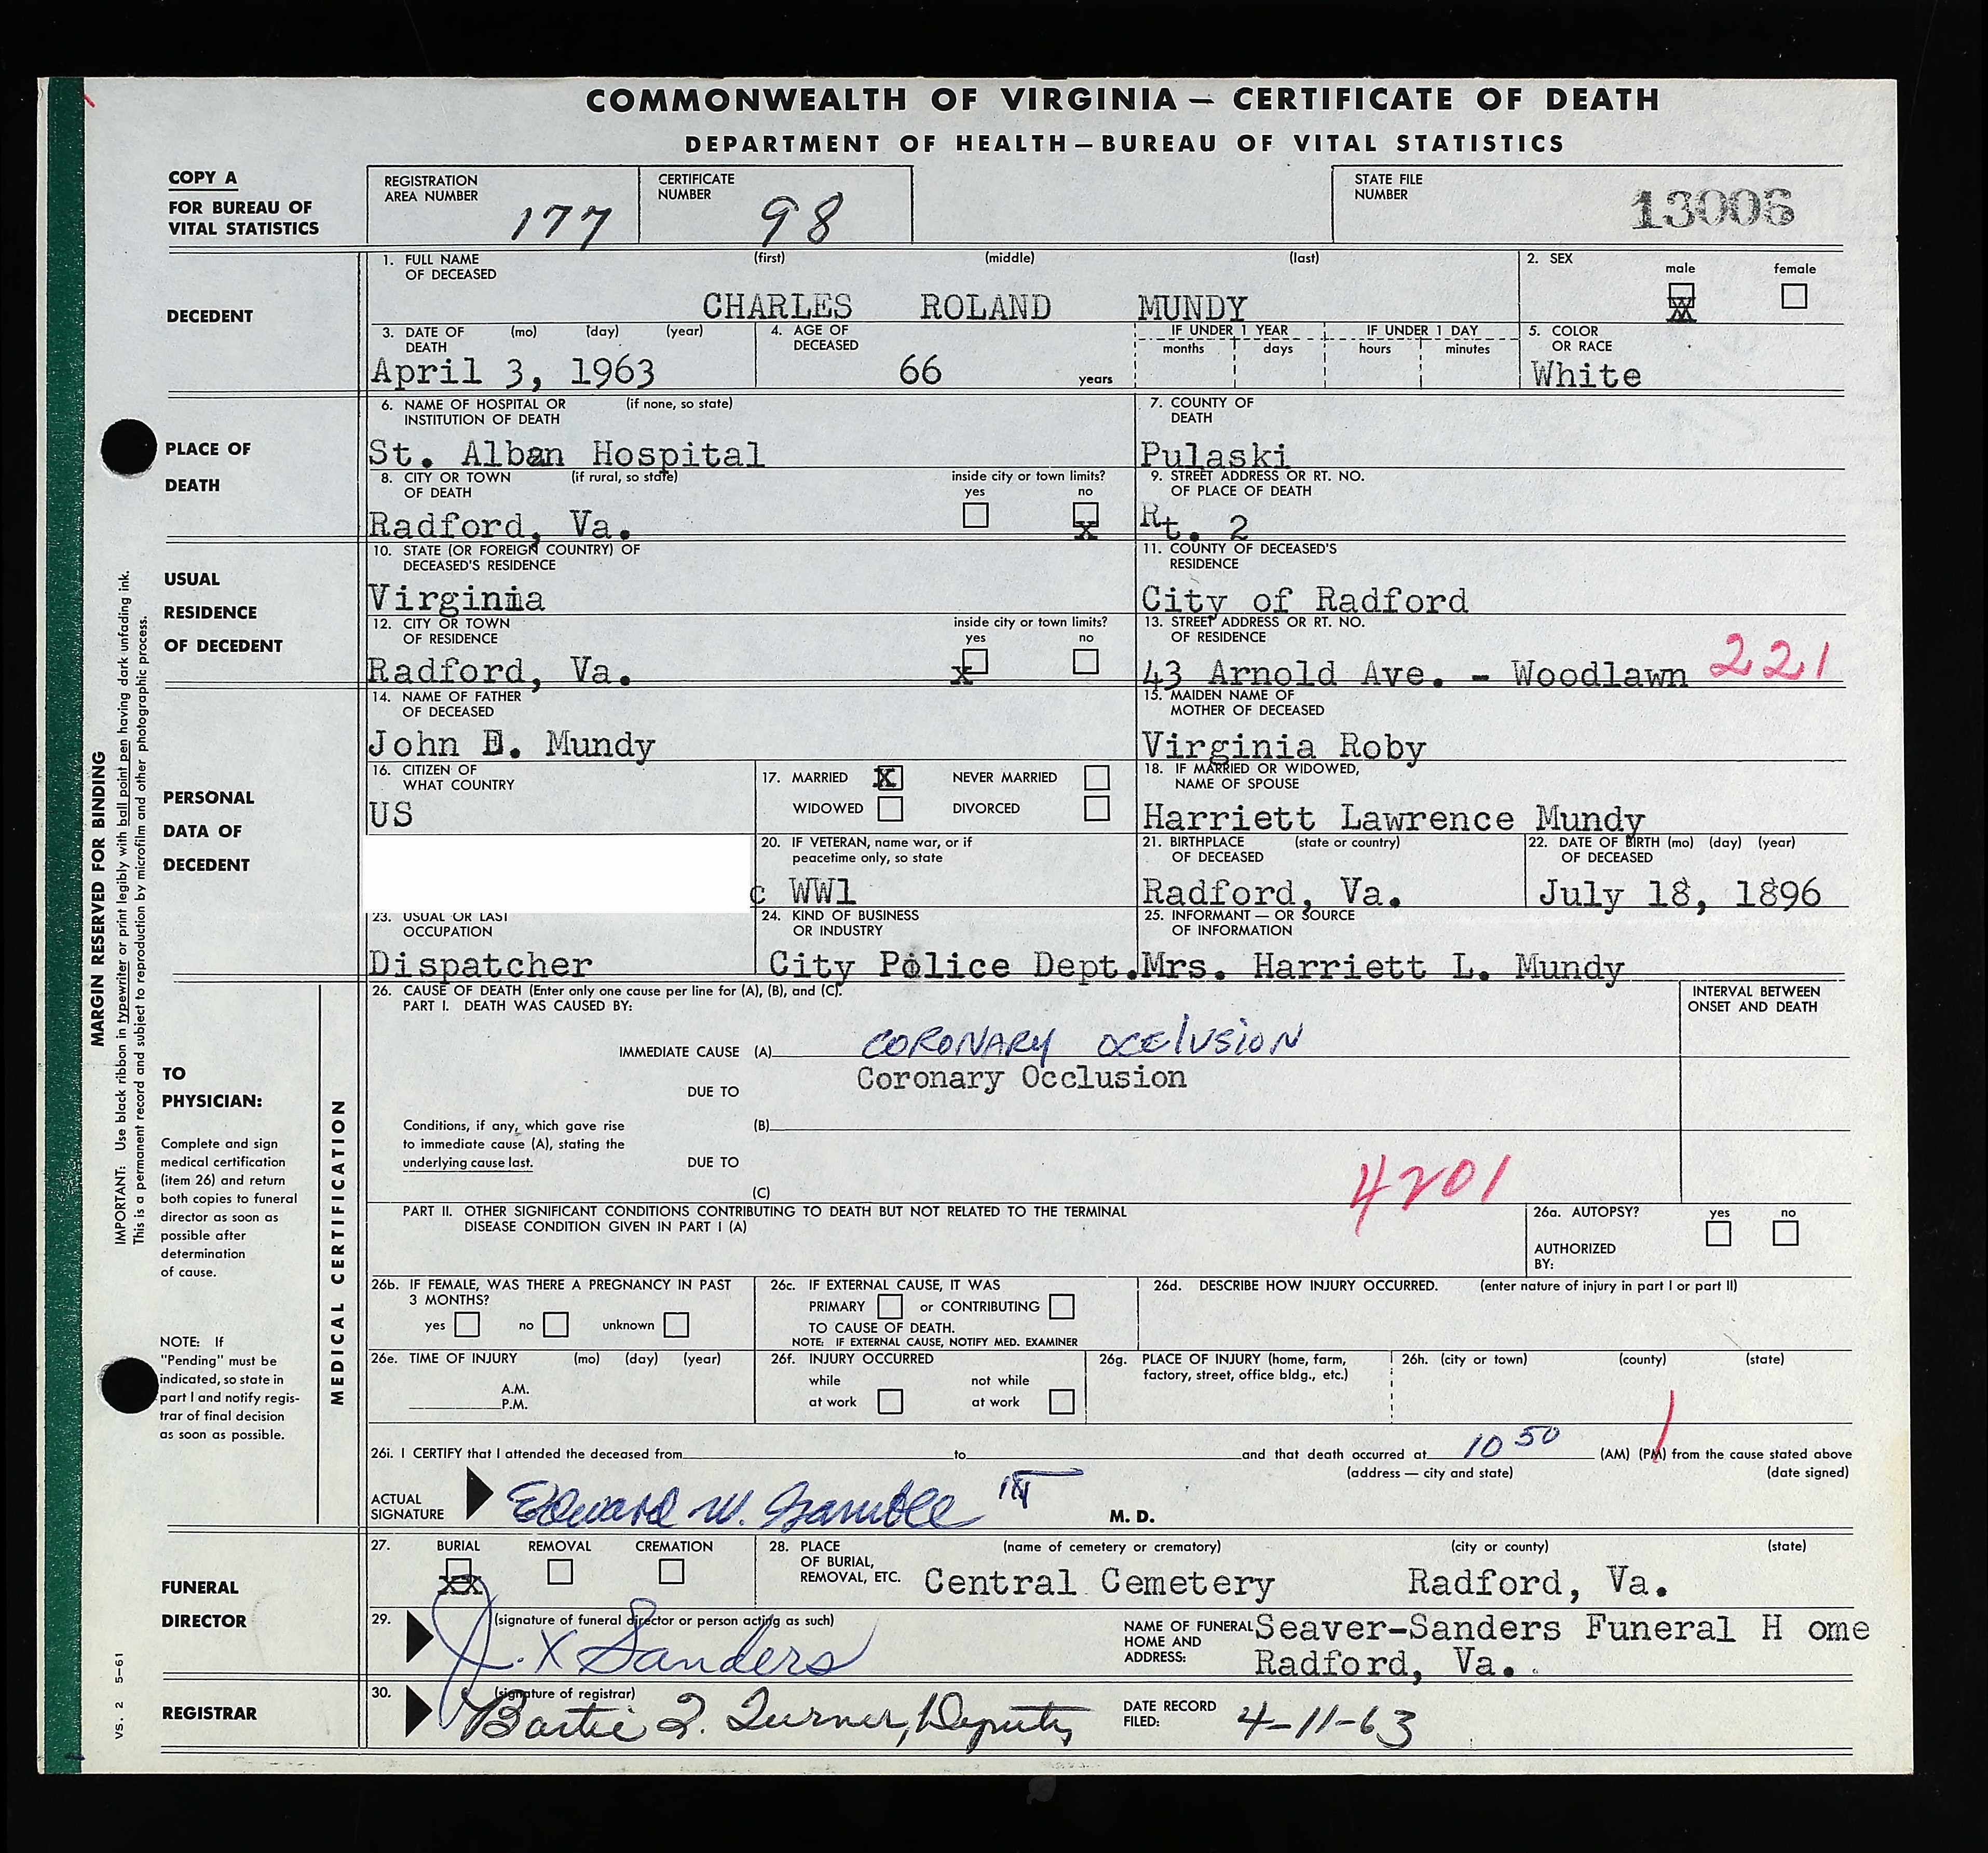 COMMONWEALTH OF VIRGINIA — CERTIFICATE OF DEATH
DEPARTMENT OF HEALTH — BUREAU OF VITAL STATISTICS
COPY A
FOR BUREAU OF
VITAL STATISTICS
REGISTRATION
AREA NUMBER 177
CERTIFICATE
NUMBER 98
STATE FILE
NUMBER 13006
DECEDENT
1. FULL NAME
OF DECEASED
(first) (middle) (last)
CHARLES ROLAND MUNDY
2. SEX
male female
X
3. DATE OF
DEATH
(mo) (day) (year)
April 3, 1963
4. AGE OF
DECEASED
66 years
IF UNDER 1 YEAR
months days
IF UNDER 1 DAY
hours minutes
5. COLOR
OR RACE
White
PLACE OF
DEATH
6. NAME OF HOSPITAL OR (if none, so state)
INSTITUTION OF DEATH
St. Alban Hospital
7. COUNTY OF
DEATH
Pulaski
8. CITY OR TOWN (if rural, so state)
OF DEATH
Radford, Va.
inside city or town limits?
yes no
X
9. STREET ADDRESS OR RT. NO.
OF PLACE OF DEATH
Rt. 2
USUAL
RESIDENCE
OF DECEDENT
10. STATE (OR FOREIGN COUNTRY) OF
DECEASED'S RESIDENCE
Virginia
11. COUNTY OF DECEASED'S
RESIDENCE
City of Radford
12. CITY OR TOWN
OF RESIDENCE
Radford, Va.
inside city or town limits?
yes no
X
13. STREET ADDRESS OR RT. NO.
OF RESIDENCE
43 Arnold Ave. - Woodlawn 221
PERSONAL
DATA OF
DECEDENT
14. NAME OF FATHER
OF DECEASED
John E. Mundy
15. MAIDEN NAME OF
MOTHER OF DECEASED
Virginia Roby
16. CITIZEN OF
WHAT COUNTRY
US
17. MARRIED X NEVER MARRIED
WIDOWED DIVORCED
18. IF MARRIED OR WIDOWED,
NAME OF SPOUSE
Harriett Lawrence Mundy
20. IF VETERAN, name war, or if
peacetime only, so state
c WW1
21. BIRTHPLACE (state or country)
OF DECEASED
Radford, Va.
22. DATE OF BIRTH (mo) (day) (year)
OF DECEASED
July 18, 1896
23. USUAL OR LAST
OCCUPATION
Dispatcher
24. KIND OF BUSINESS
OR INDUSTRY
City Police Dept.
25. INFORMANT — OR SOURCE
OF INFORMATION
Mrs. Harriett L. Mundy
MARGIN RESERVED FOR BINDING
IMPORTANT: Use black ribbon in typewriter or print legibly with ball point pen having dark unfading ink.
This is a permanent record and subject to reproduction by microfilm and other photographic process.
TO
PHYSICIAN:
Complete and sign
medical certification
(item 26) and return
both copies to funeral
director as soon as
possible after
determination
of cause.
NOTE: If
"Pending" must be
indicated, so state in
part I and notify regis-
trar of final decision
as soon as possible.
MEDICAL CERTIFICATION
26. CAUSE OF DEATH (Enter only one cause per line for (A), (B), and (C).
PART I. DEATH WAS CAUSED BY:
INTERVAL BETWEEN
ONSET AND DEATH
IMMEDIATE CAUSE (A) CORONARY OCClUSION
Coronary Occlusion
DUE TO
Conditions, if any, which gave rise
to immediate cause (A), stating the
underlying cause last.
(B)
DUE TO
(C)
4201
PART II. OTHER SIGNIFICANT CONDITIONS CONTRIBUTING TO DEATH BUT NOT RELATED TO THE TERMINAL
DISEASE CONDITION GIVEN IN PART I (A)
26a. AUTOPSY? yes no
AUTHORIZED
BY:
26b. IF FEMALE, WAS THERE A PREGNANCY IN PAST
3 MONTHS?
yes no unknown
26c. IF EXTERNAL CAUSE, IT WAS
PRIMARY or CONTRIBUTING
TO CAUSE OF DEATH.
NOTE: IF EXTERNAL CAUSE, NOTIFY MED. EXAMINER
26d. DESCRIBE HOW INJURY OCCURRED. (enter nature of injury in part I or part II)
26e. TIME OF INJURY (mo) (day) (year)
A.M.
P.M.
26f. INJURY OCCURRED
while not while
at work at work
26g. PLACE OF INJURY (home, farm,
factory, street, office bldg., etc.)
26h. (city or town) (county) (state)
26i. I CERTIFY that I attended the deceased from to and that death occurred at 10 50 (AM) (PM) from the cause stated above
(address — city and state) (date signed)
ACTUAL
SIGNATURE
Edward W. Gamble III M. D.
FUNERAL
DIRECTOR
27. BURIAL REMOVAL CREMATION
XX
28. PLACE
OF BURIAL,
REMOVAL, ETC.
(name of cemetery or crematory) (city or county) (state)
Central Cemetery Radford, Va.
29. (signature of funeral director or person acting as such)
J. X Sanders
NAME OF FUNERAL
HOME AND
ADDRESS:
Seaver-Sanders Funeral H ome
Radford, Va.
REGISTRAR
30. (signature of registrar)
Bartie T. Turner, Deputy
DATE RECORD
FILED: 4-11-63
VS. 2 5-61